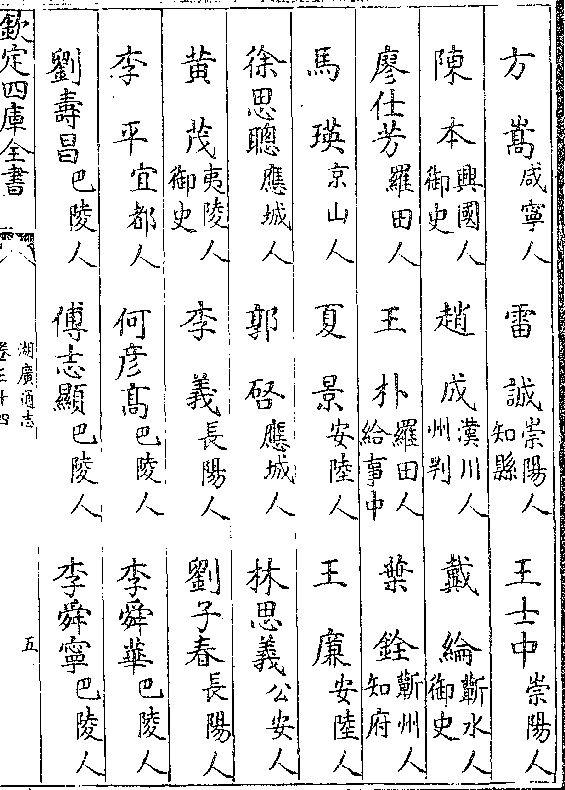 方嵩咸寧人　雷誠崇陽人知縣　王士中崇陽人
陳本興國人御史　趙成漢川人州判　戴綸蘄水人御史
廖仕芳羅田人　王朴羅田人給事中　葉銓蘄州人知府
馬瑛京山人　夏景安陸人　王廉安陸人
徐思聰應城人　郭啓應城人　林思義公安人
黄茂夷陵人御史　李義長陽人　劉子春長陽人
李平宜都人　何彦高巴陵人　李舜華巴陵人
劉壽昌巴陵人　傅志顯巴陵人　李舜寧巴陵人
欽定四庫全書　湖廣通志卷三十四　五